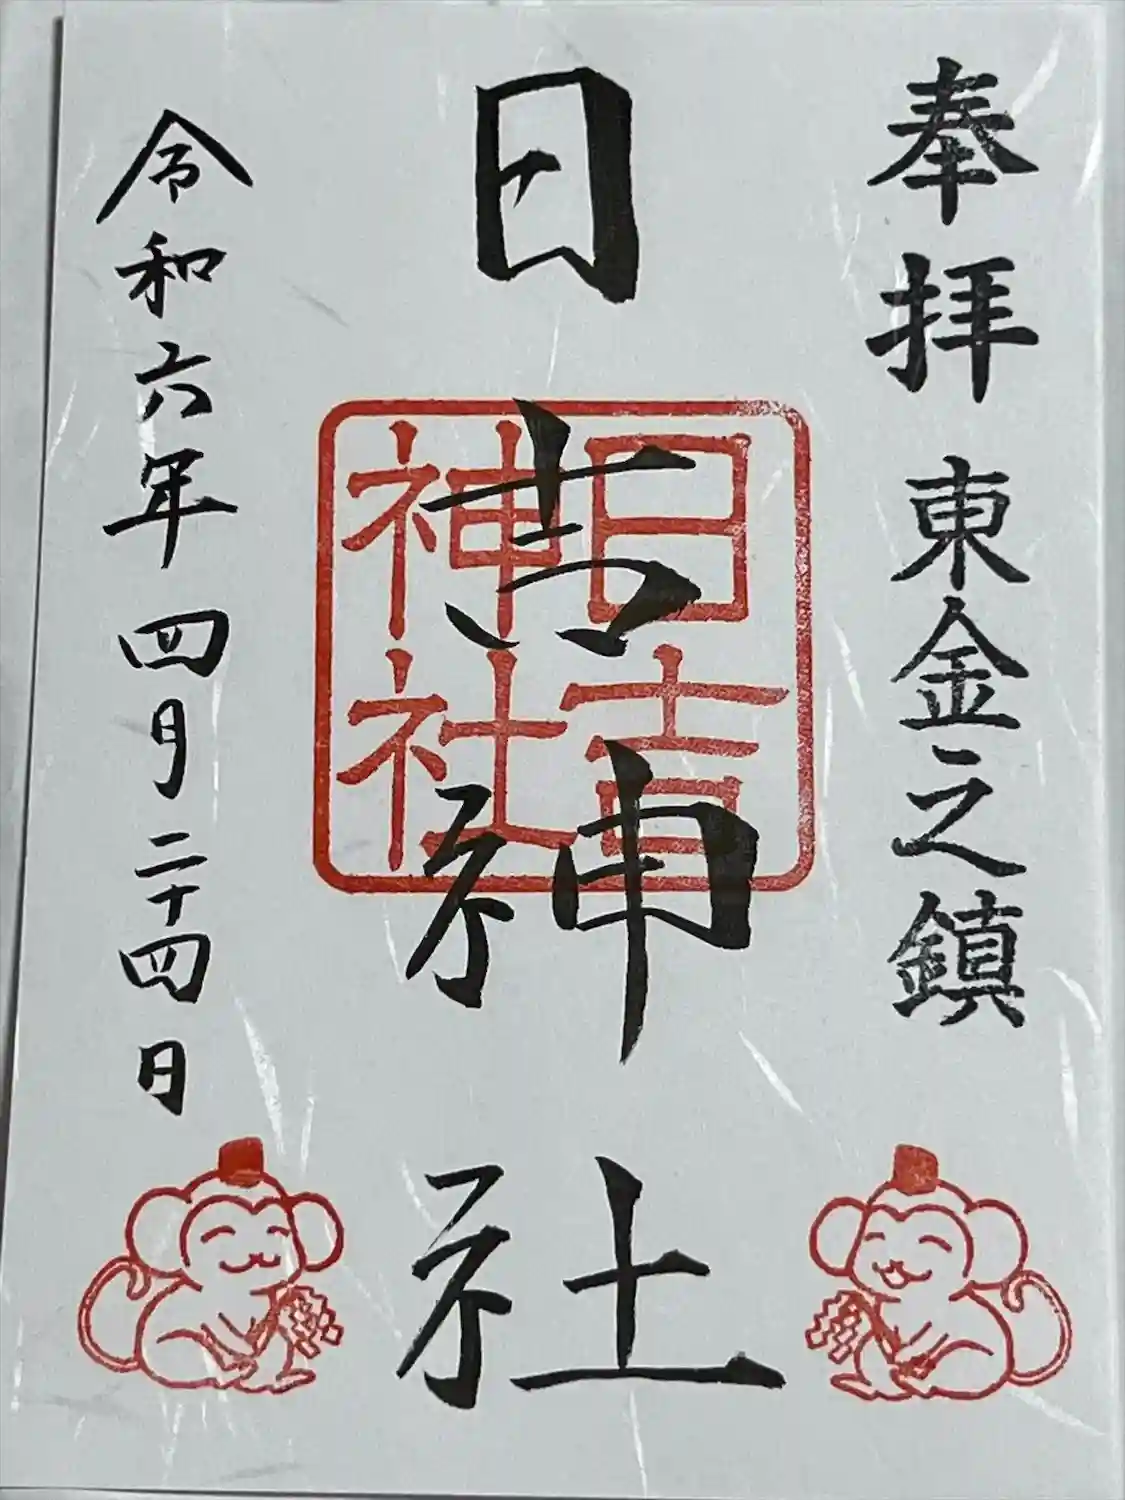 奉拝 東金之鎮
日吉神社
日吉
神社
令和六年 四月二十四日